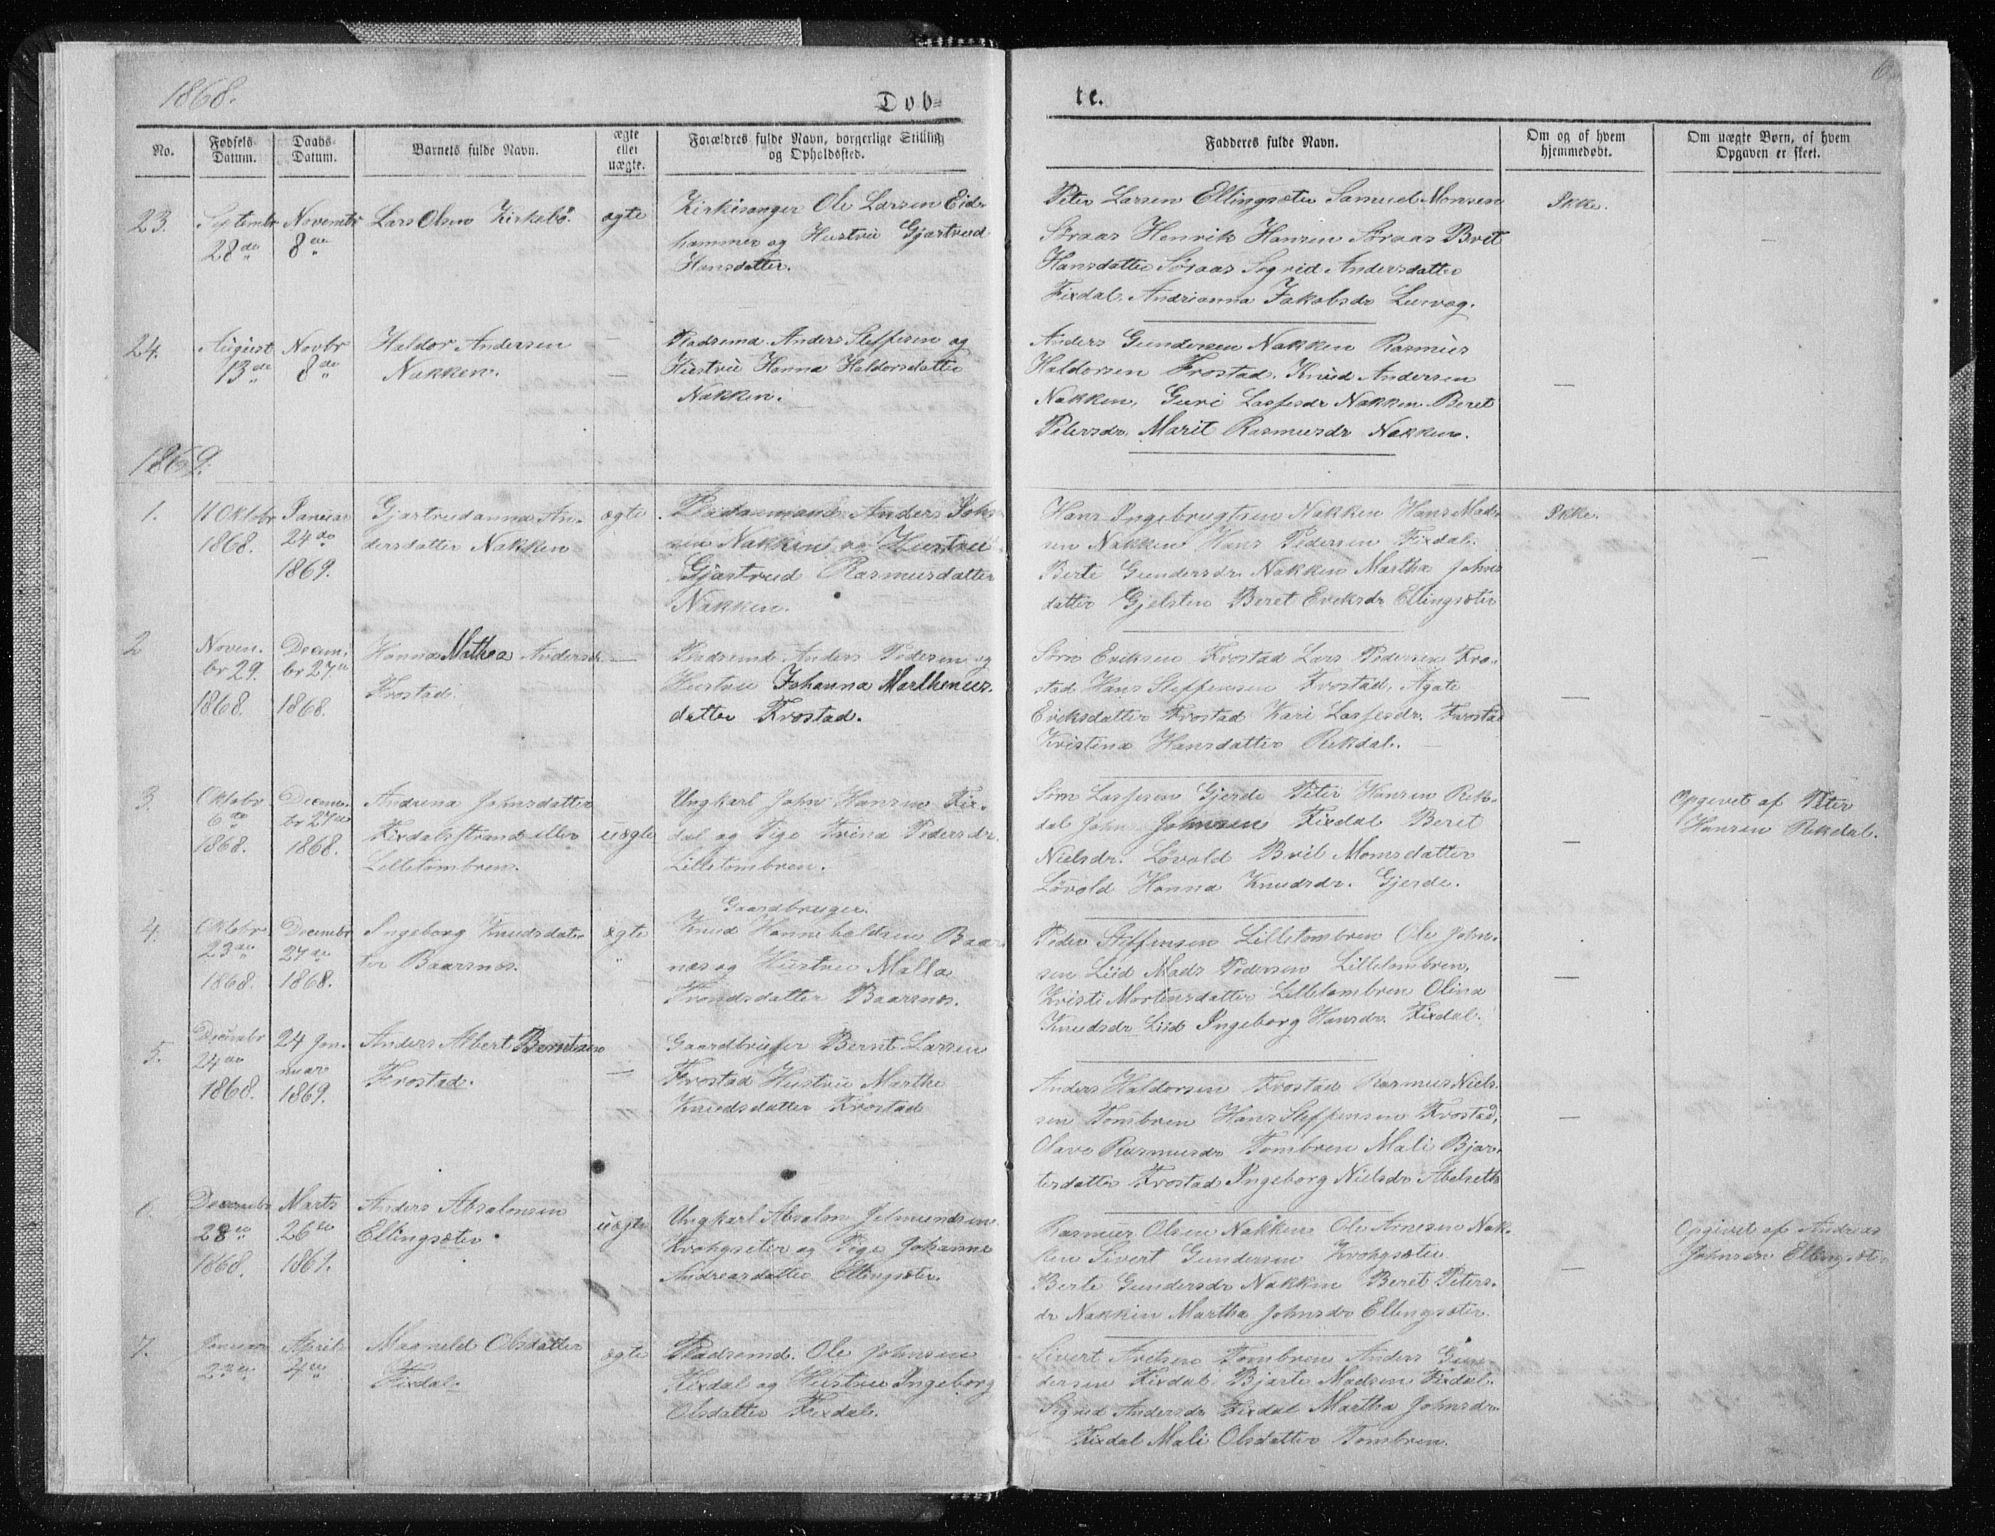 1868.
6
Døb-
te.
No.
Fødsels Datum.
Daabs-Datum.
Barnets fulde Navn.
ægte eller uægte.
Forældres fulde Navn, borgerlige Stilling og Opholdssted.
Fadderes fulde Navn.
Om og af hvem hjemmedøbt.
Om uægte Børn, af hvem Opgaven er skeet.
23.
Septembr
28de
Novembr
8de
Lars Olsen Kirkebö.
ægte
Kirkesanger Ole Larsen Eids-
hammer og Hustru Gjertrud
Hansdatter.
Peter Larsen Ellingsæter Samuel Monsen
Søraas Henrik Hansen Søraas Brit
Hansdatter Søraas Sigrid Andersdatter
Fixdal. Andrianna Jakobsdr Lervog.
Ikke.
—
24.
August
13de
Novbr
8de
Haldor Andersen
Nakken.
—
Pladsmd. Anders Steffesen og
Hustru Hanna Haldorsdatter
Nakken.
Anders Gundersen Nakken Rasmus
Haldorsen Frostad. Knud Andersen
Nakken, Guri Lassesdr Nakken Beret
Petersdr. Marit Rasmusdr Nakken.
—
1869.
1.
11 Oktobr
1868.
Januar
24de
1869.
Gjertrudanna An-
dersdatter Nakken
ægte
Pladsmand Anders Joh-
sen Nakken og Hustru
Gjertrud Rasmusdatter
Nakken.
Hans Ingebrugtsen Nakken Hans Mad-
sen Nakken Hans Pedersen Fixdal.
Berte Gundersdr. Nakken Martha Johns
datter Gjelsten Beret Eriksdr Ellingsæter
Ikke.
—
2
Novem-
br 29.
1868.
Decem-
br 27de
1868.
Hanna Mathea Andersd.
Frostad.
—
Pladsmd. Anders Pedersen og
Hustru Johanna Marthenus-
datter Frostad.
Sørn Eriksen Frostad Lars Pedersen Fro-
stad Hans Steffensen Frostad, Agate
Eriksdatter Frostad Kari Lassesdr. Frostad
Kristina Hansdatter Rekdal.
—
—
3.
Oktobr
6te
1868.
Decem-
br 27de
1868.
Andrena Johnsdatter
Fixdalsstrand eller
Lilletombren.
uægte
Ungkarl John Hansen Fix-
dal og Pige Trina Pedersdr.
Lilletombren.
Sørn Lassesen Gjerde Peter Hansen Rek-
dal John Johnsen Fixdal Beret
Nielsdr. Løvold Brit Monsdatter
Løvold Hanna Knudsdr. Gjerde.
—
Opgivet af Peter
Hansen Rekdal.
4.
Oktobr
23de
1868.
Decembr
27de
1868.
Ingeborg Knudsdat-
ter Baarsnes.
ægte
Gaardbruger.
Knud Hanneholdsen Baars-
nes og Hustru Malla
Trondsdatter Baarsnes.
Peder Steffensen Lilletombren Ole John-
sen Liid Mads Pedersen Lilletombren,
Kristi Mortensdatter Lilletombren Olina
Knudsdr Liid Ingeborg Hansdr. Fixdal.
—
5.
Decembr
24de
1868.
24 Jan-
nuar
1869.
Anders Albert Berntsen
Frostad.
—
Gaardbruger Bernt Larsen
Frostad Hustru Marthe
Knudsdatter Frostad
Anders Haldorsen Frostad Rasmus Niels-
sen Tombren Hans Steffensen Frostad,
Olave Rasmusdr Tombren Mali Bjar-
tesdatter Frostad Ingeborg Nielsdr Abelseth
—
6.
Decembr
28de
1868.
Marts
26de
1869.
Anders Absalonsen
Ellingsæter.
uægte
Ungkarl Absalon Jetmundsen
Krohgsæter og Pige Johanna
Andreasdatter Ellingsæter.
Rasmus Olsen Nakken Ole Arnesen Nak-
ken Sivert Gundersen Krohgsæter
Berte Gundersdr Nakken Beret Peters-
dr Nakken Martha Johnsdr Ellingsæter.
—
Opgivet af Andreas
Johnsen Ellingsæter
7.
Januar
23de
April
4de
Magnild Olsdatter
Fixdal.
ægte
Pladsmd. Ole Johnsen
Fixdal og Hustru Ingeborg
Olsdatter Fixdal.
Sivert Aretsen Tombren Anders Gun-
dersen Fixdal. Bjarte Madsen Fixdal.
Sigrid Andersdr Fixdal Martha Johnsdr
Fixdal Mali Olsdatter Tombren.